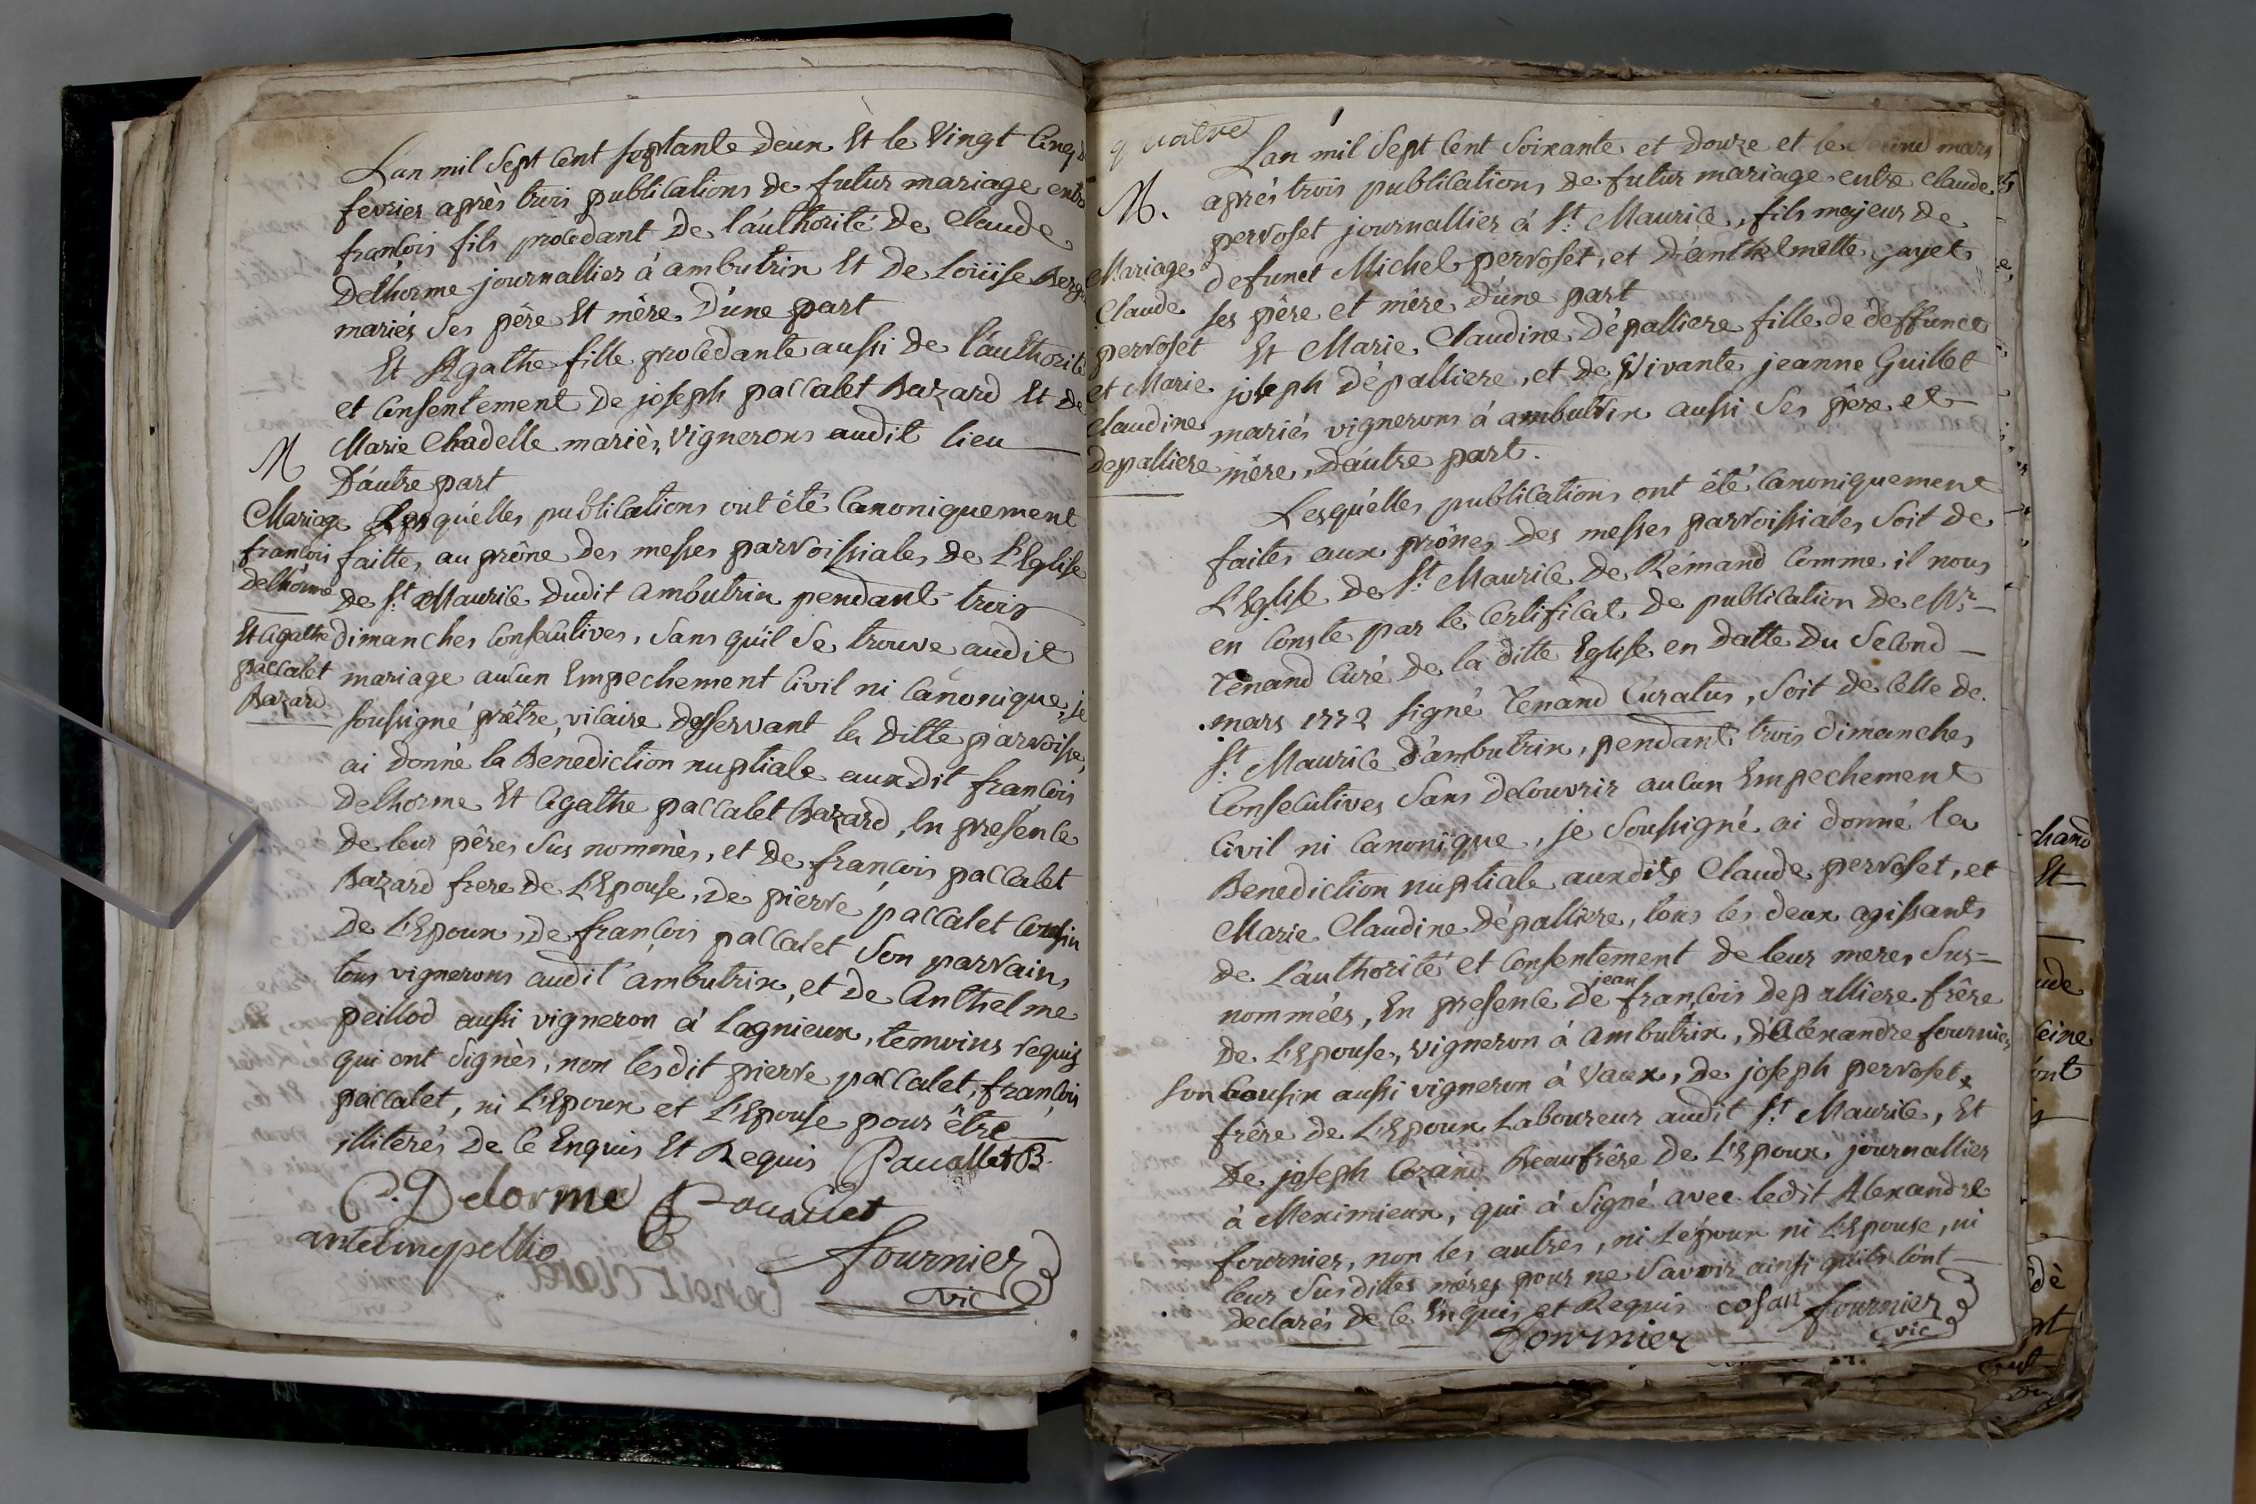 Lan mil Sept Cent septante deux Et le Vingt Cinq
fevrier après trois publications de futur mariage entre
francois fils procedant de l'áuthorité de Claude
Delhorme journallier à ambutrix Et de Loüise
mariés Ses pêre Et mêre D'une part
Et Agathe fille procedante aussi de l'áuthorité
et Consentement de joseph paccalet Bazard Et de
Marie Chadelle mariès, Vignerons audit lieu
D'áutre part
M
Mariage
francois
Delhorme
Et Agathe
paccalet
Bazard
Lesqu'elles publications ont été Canoniquement
faittes, au prône des messes parroissiales de L'Eglise
de St. Maurice dudit ambutrix pendant trois
dimanches Consécutives, Sans qu'il Se trouve audit
mariage aucun Empechement Civil ni Canonique, je
soussigné prêtre, vicaire desservant la ditte parroisse,
ai donné la Benediction nuptiale auxdit francois
Delhorme Et Agathe paccalet Bazard, En presence
de leur pêres Sus nommès, et de francois paccalet
Bazard frere de L'Epouse, de pierre paccalet Cousin
de L'Epoux, de francois paccalet Son parrain,
tous vignerons audit ambutrix, et de Anthelme
peillod aussi vigneron à lagnieux, temoins requis
qui ont Signès, non lesdit pierre paccalet, francois
paccalet, ni L'Epoux et L'Epouse pour être
illiterés de Ce Enquis Et Requis Pacallet B.
C. Delorme
fournier
vic
quatre
Lan mil Sept Cent Soixante et Douze et le mars
après trois publications de futur mariage entre claude
perroset journallier à St. Maurice, fils majeur de
defunct Michel perroset, et d'anthelmette gayet
ses pére et mére d'une part
Et Marie Claudine Dépalliere fille de deffunct
joseph dépalliere, et de vivante jeanne Guillet
mariés vignerons à ambutrix aussi Ses pêre et
mêre, D'áutre part.
M.
Mariage
Claude
perroset
et Marie
claudine
depalliere
Lesqu'elles publications ont été Canoniquement
faites aux prônes des messes parroissiales, Soit de
L'Eglise de St. Maurice de Rémand Comme il nous
en Conste par le Certificat de publication de Mr.
Tenand Curé de la ditte Eglise en datte du Second
mars 1772 signé Tenand Curatus, Soit de Celle de
St. Maurice d'ambutrix, pendant trois dimanches
Consecutives Sans decouvrir aucun Empechement
Civil ni Canonique, je Soussigné ai donné la
Benediction nuptiale auxdits Claude perroset, et
Marie Claudine Dépalliere, tous les deux agissants
de L'áuthorité et Consentement de leur meres Sus-
nommées, En presence de jean françois depalliere frêre
de L'Epouse, vigneron à ambutrix, d'Alexandre fournier
son Cousin aussi vigneron à Vaux, de joseph perroset
frêre de L'Epoux Laboureur audit St. Maurice, Et
de joseph Cozand Beaufrêre de L'Epoux journallier
à Meximieux, qui à Signé avec ledit Alexandre
fournier, non les autres, ni L'époux ni L'Epouse, ni
leur Susdittes méres pour ne Savoir ainsi qu'ils l'ont
declarés de Ce Enquis et Requis cosan fournier
vic
fournier